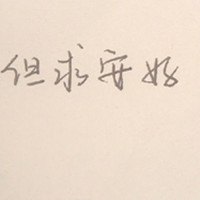 但求安好